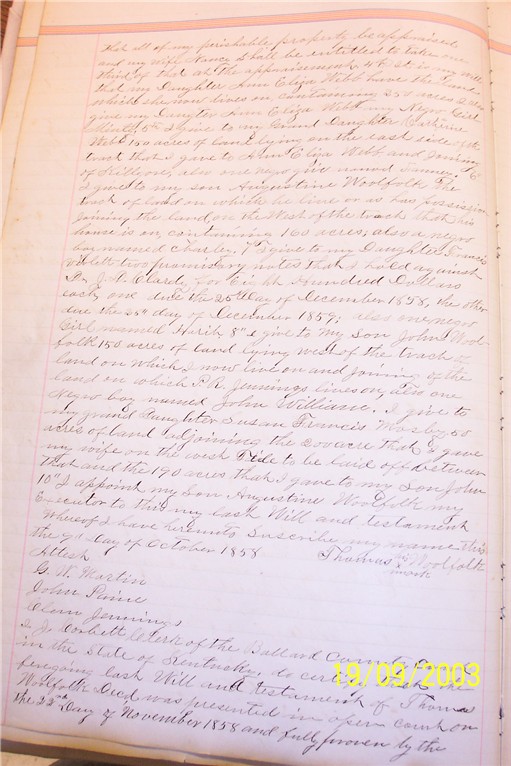 that all of my perishable property be appraised
and my wife Nancy shall be entitled to take one
third of that at the appraisement 4th It is my will
that my Daughter Ann Eliza Webb have the land
which she now lives on, containing 250 acres I also
give my Daughter Ann Eliza Webb my Negro Girl
5th I give to my Grand Daughter Catherine
Webb 150 acres of land lying on the east side of the
tract that I give to Ann Eliza Webb and joining
of also one negro girl named 6
I give to my son Augustine Woolfolk the
track of land on which he live or as has possession
joining the land on the West of the track that his
house is on, containing 160 acres, also a negro
boy named Charley. 7th I give to my Daughter Francis
two promissary notes that I hold against
J. N. Clardy, for Eight Hundred Dollars
each, one due the 25th Day of December 1858, the other
due the 25th day of December 1859; also one negro
Girl named 8th I give to my Son John Wool-
folk 150 acres of land lying west of the track of
land on which I now live on and joining of the
land on which P. R. Jennings lives on, also one
Negro boy named John William. I give to
my grand Daughter Susan Francis Mosby 50
acres of land adjoining the acre that I gave
my wife on the west Side to be laid off between
that and the 190 acres that I gave to my Son John
10th I appoint my Son Augustine Woolfolk my
Executor to this my last Will and testament
Whereof I have hereunto Suscribe my name this
the 9th Day of October 1858 Thomas his Woolfolk
Attest mark
G. W. Martin
John
Clem Jennings
I Jo Corbett Clerk of the Ballard County Court
in the State of Kentucky, do certify that the
foregoing last Will and testament of Thomas
Woolfolk Decd was presented in open court on
the 22nd Day of November 1858 and fully proven by the
19/09/2003